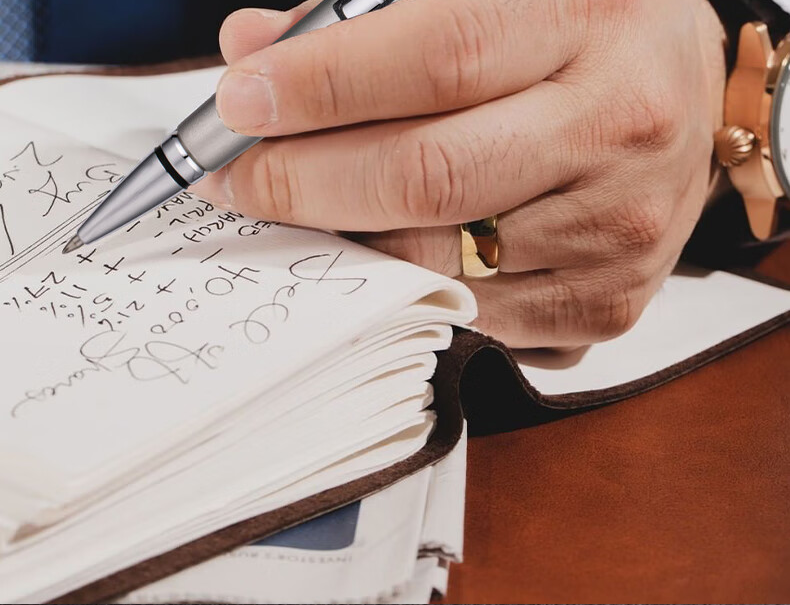 Sell
40.000
Shares
FEB - + 21%
MARCH - + 5%
APRIL - + 11%
MAY - + 27%
Buy
INVESTOR'S BUS